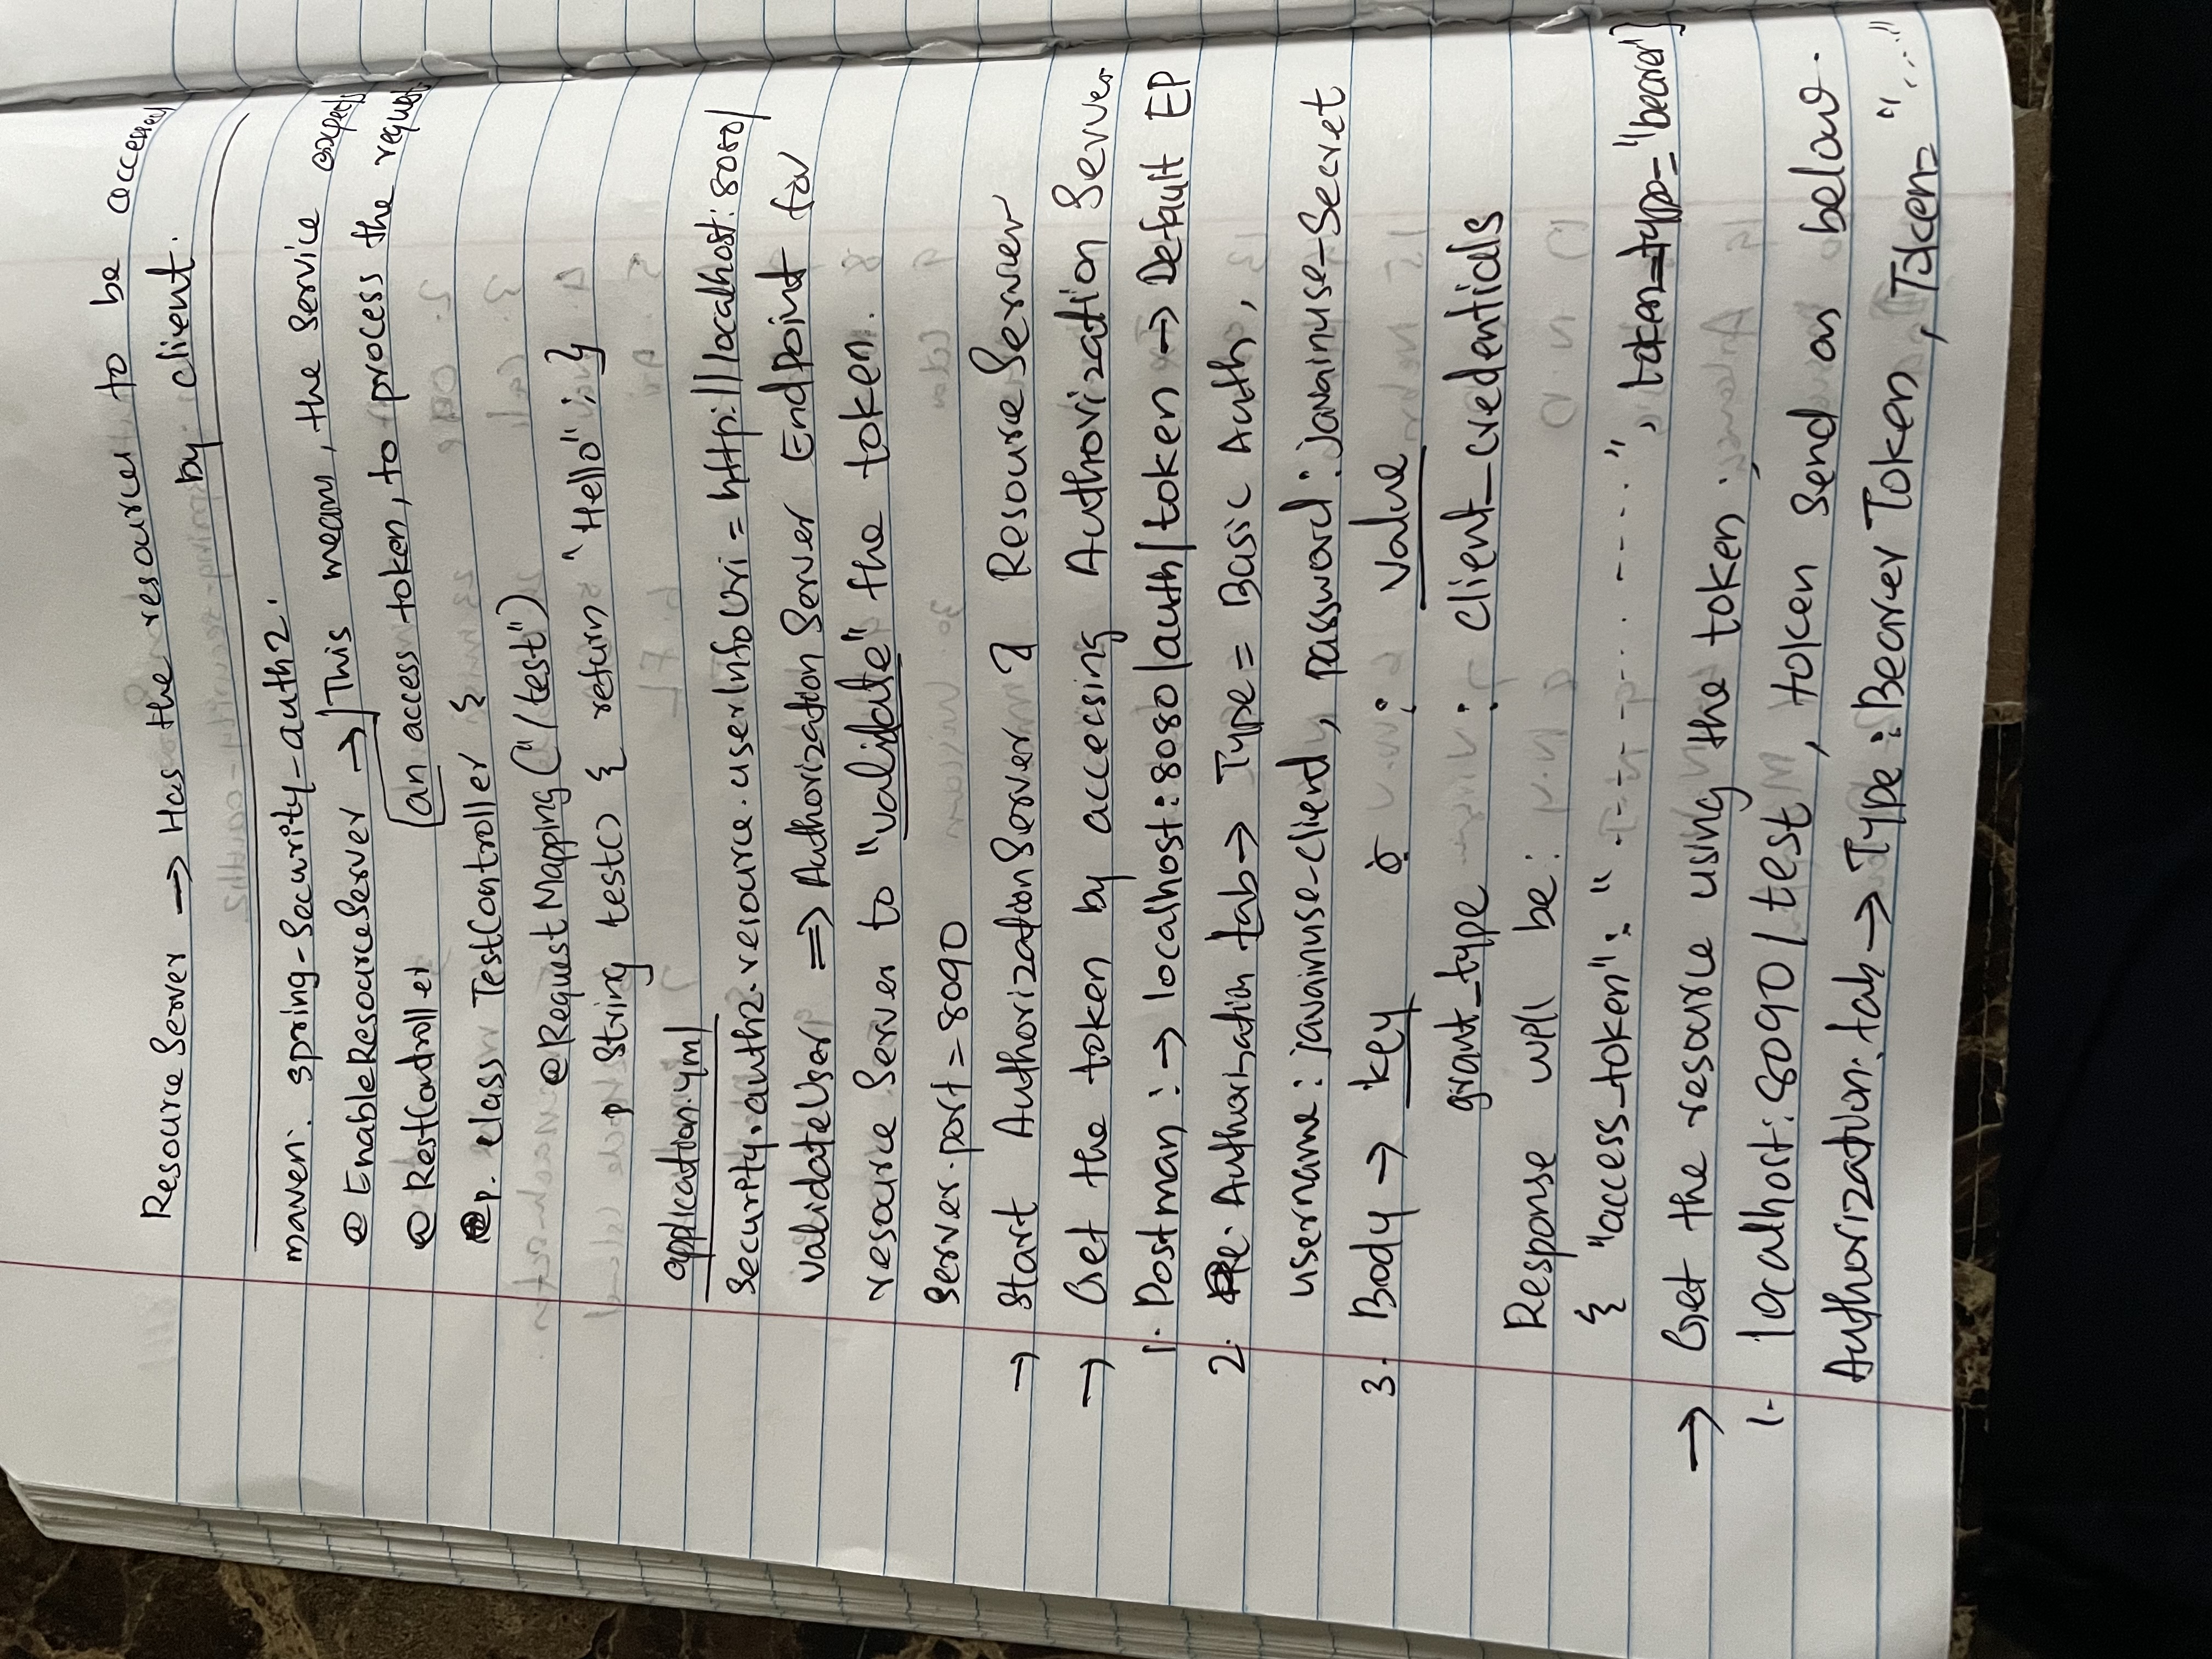 Resource Server → Has the resources to be accessed
by client.
maven: spring-security-auth2.
@EnableResourceServer → This means, the service expects
@RestController an access token, to process the request
p. class TestController {
@RequestMapping ("/test")
p String test() { return "Hello"; }
application.yml
security.auth2.resource.userInfoUri = http://localhost:8080/
validateUser ⇒ Authorization Server EndPoint for
resource Server to "validate" the token.
server.port = 8090
→ Start AuthorizationServer & Resource Server
→ Get the token by accecsing Authorization Server
1. Postman : → localhost:8080/auth/token → Default EP
2. Authorization tab → Type = Basic Auth,
username: javainuse-client, password: javainuse-secret
3. Body → key : value
grant_type : client_credentials
Response will be:
{ "access_token": "---------- ----..", token_type="bearer"}
→ Get the resource using the token;
1. localhost:8090/test, token send as below.
Authorization: tab → Type: Bearer Token, Token= "....."